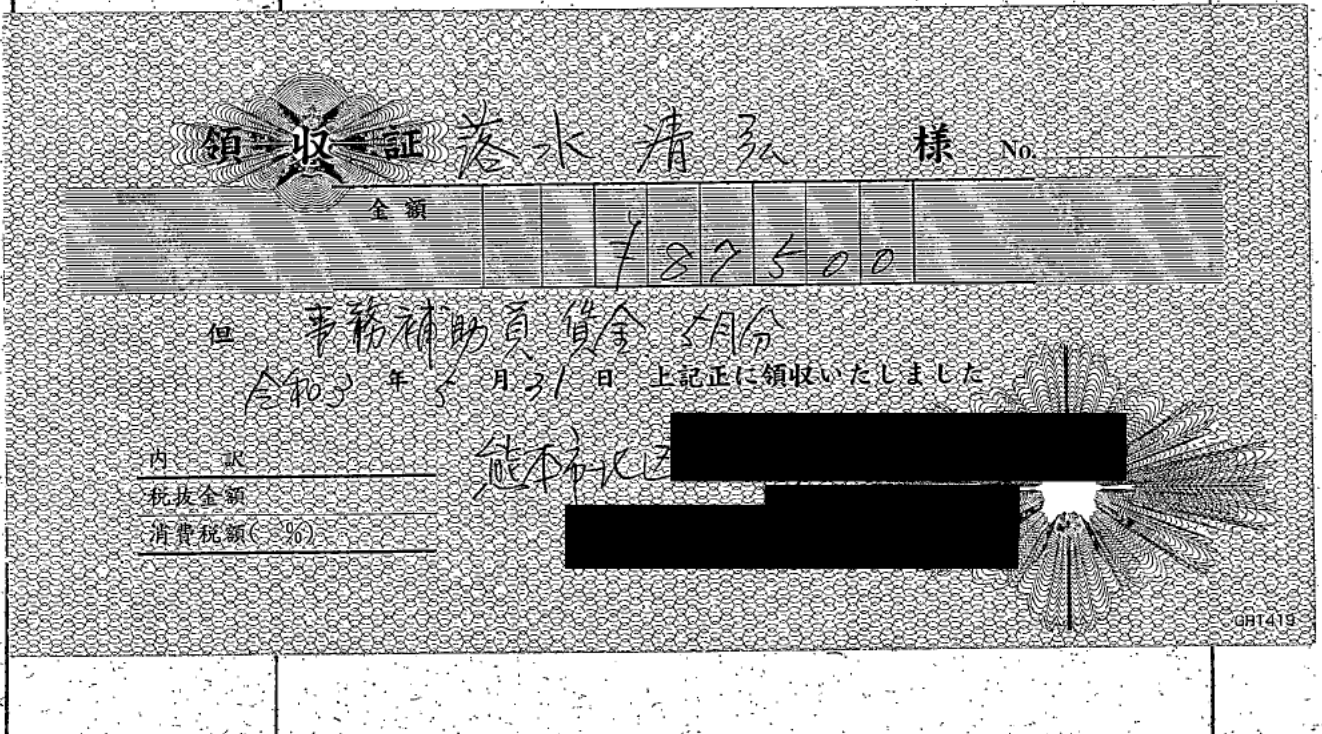 領収証 落水清弘 様 No.
金額 ¥87500
但 事務補助員 賃金 5月分
令和3年5月31日 上記正に領収いたしました
内訳
熊本市北区
税抜金額
消費税額( %)
GR1419